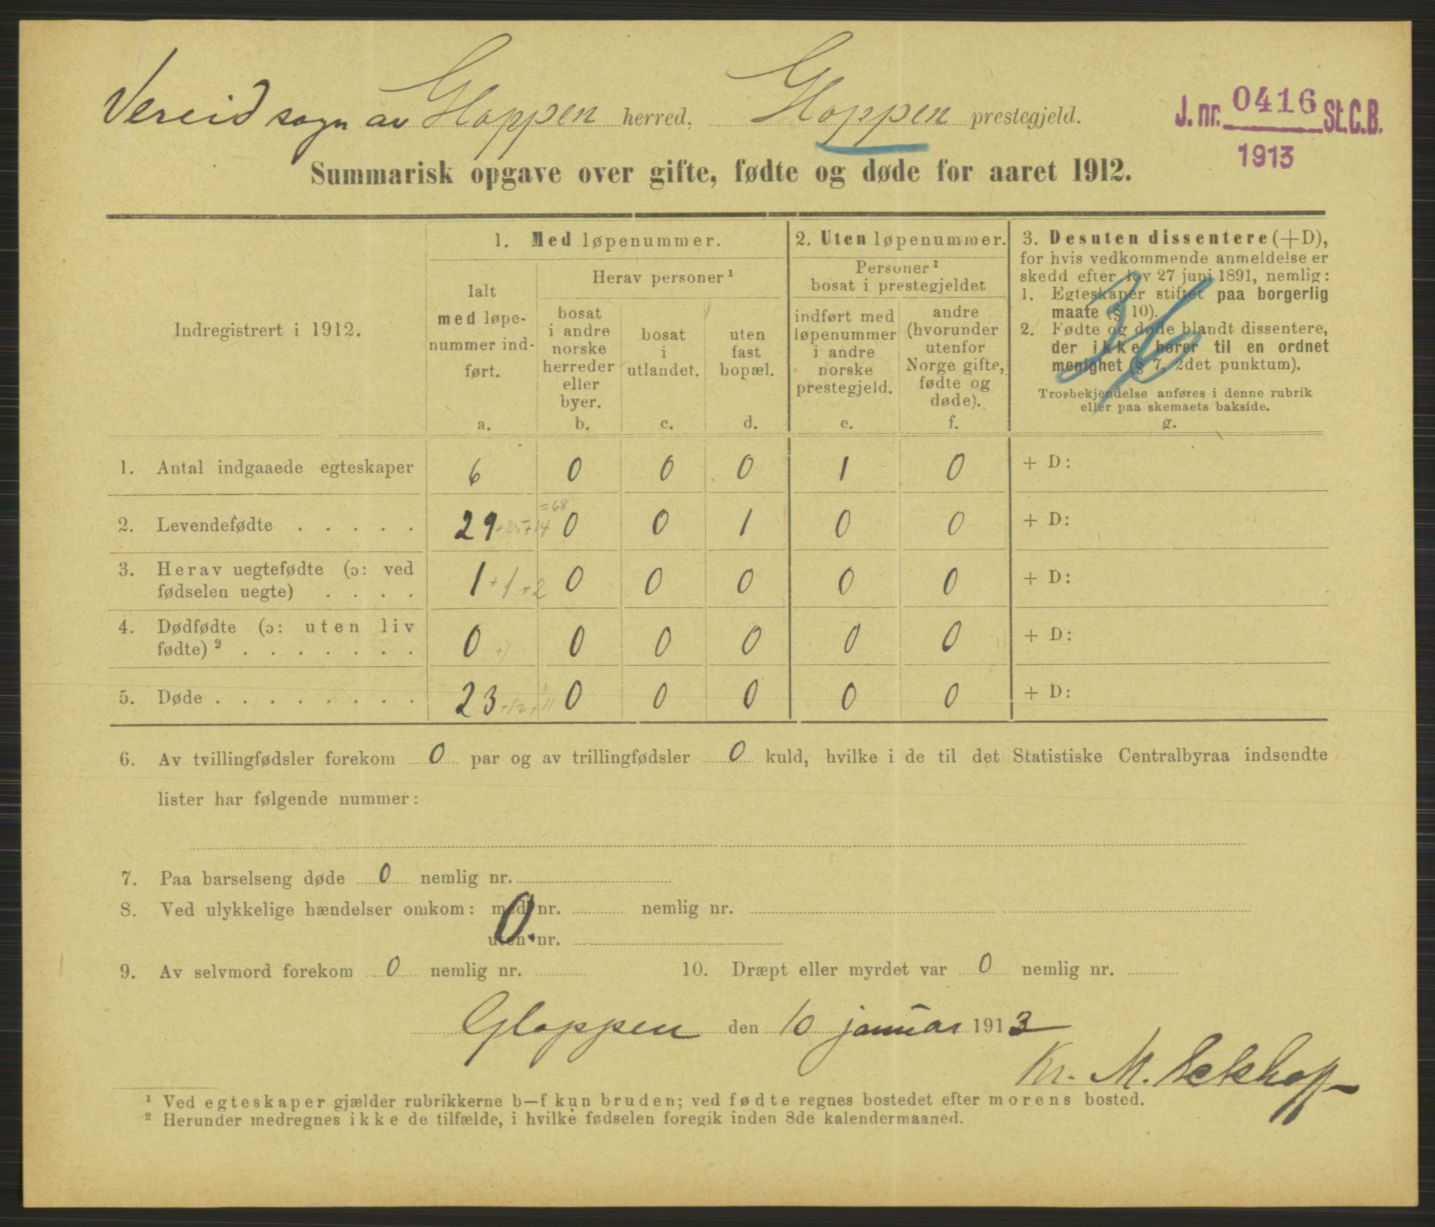 Vereid sogn av Gloppen herred, Gloppen prestegjeld.
J. nr. 0416 St. C. B.
1913
Summarisk opgave over gifte, fødte og døde for aaret 1912.
Indregistrert i 1912.
1. Med løpenummer.
Ialt
med løpe-
nummer ind-
ført.
a.
Herav personer ¹
bosat
i andre
norske
herreder
eller
byer.
b.
bosat
i
utlandet.
c.
uten
fast
bopæl.
d.
2. Uten løpenummer.
Personer ¹
bosat i prestegjeldet
indført med
løpenummer
i andre
norske
prestegjeld.
e.
andre
(hvorunder
utenfor
Norge gifte,
fødte og
døde).
f.
3. Desuten dissentere (+D),
for hvis vedkommende anmeldelse er
skedd efter lov 27 juni 1891, nemlig:
1. Egteskaper stiftet paa borgerlig
maate (§ 10).
2. Fødte og døde blandt dissentere,
der ikke hører til en ordnet
menighet (§ 7, 2det punktum).
Trosbekjendelse anføres i denne rubrik
eller paa skemaets bakside.
g.
1. Antal indgaaede egteskaper 6 0 0 0 1 0 + D:
2. Levendefødte . . . . . 29 +25+14 =68 0 0 1 0 0 + D:
3. Herav uegtefødte (ɔ: ved
fødselen uegte) . . . . 1 +1 +2 0 0 0 0 0 + D:
4. Dødfødte (ɔ: uten liv
fødte) ² . . . . . . . 0 +1 0 0 0 0 0 + D:
5. Døde . . . . . . . . 23 +12+11 0 0 0 0 0 + D:
6. Av tvillingfødsler forekom 0 par og av trillingfødsler 0 kuld, hvilke i de til det Statistiske Centralbyraa indsendte
lister har følgende nummer:
7. Paa barselseng døde 0 nemlig nr.
8. Ved ulykkelige hændelser omkom: med nr. nemlig nr.
0.
uten nr.
9. Av selvmord forekom 0 nemlig nr. 10. Dræpt eller myrdet var 0 nemlig nr.
Gloppen den 10 januar 1913
Kr. M. Eckhoff
¹ Ved egteskaper gjælder rubrikkerne b—f kun bruden; ved fødte regnes bostedet efter morens bosted.
² Herunder medregnes ikke de tilfælde, i hvilke fødselen foregik inden 8de kalendermaaned.